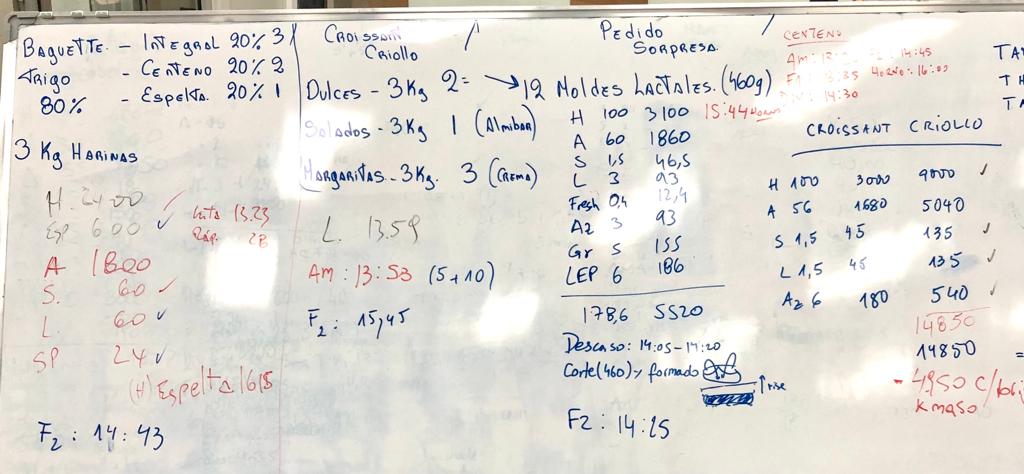 BAGUETTE. - INTEGRAL 20% 3
TRIGO - CENTENO 20% 2
80% - ESPELTA. 20% 1
3 Kg HARINAS
H. 2400
Esp 600
Lenta 13.23
Ráp. 28
A 1800
S. 60
L. 60
SP 24
(H) Espelta 1615
F2: 14:43
CROISSANT
CRIOLLO
DULCES - 3Kg 2=
SALADOS - 3Kg 1 (Almibar)
MARGARITAS - 3Kg. 3 (CREMA)
L. 13.59
Am: 13:53 (5+10)
F2: 15,45
PEDIDO
SORPRESA
12 MOLDES LACTALES. (460g)
H 100 3100 15:44 HORNO
A 60 1860
S 1,5 46,5
L 3 93
Fresh 0,4 12,4
Az 3 93
Gr 5 155
LEP 6 186
178,6 5520
Descaso: 14:05-14:20
Corte (460) y formado
rise
F2: 14:25
CENTENO
14:45
HORNO: 16:00
14:30
CROISSANT CRIOLLO
H 100 3000 9000
A 56 1680 5040
S 1,5 45 135
L 1,5 45 135
Az 6 180 540
14850
14850 =
- 4950 C/
K MASA
TA
TH
TA